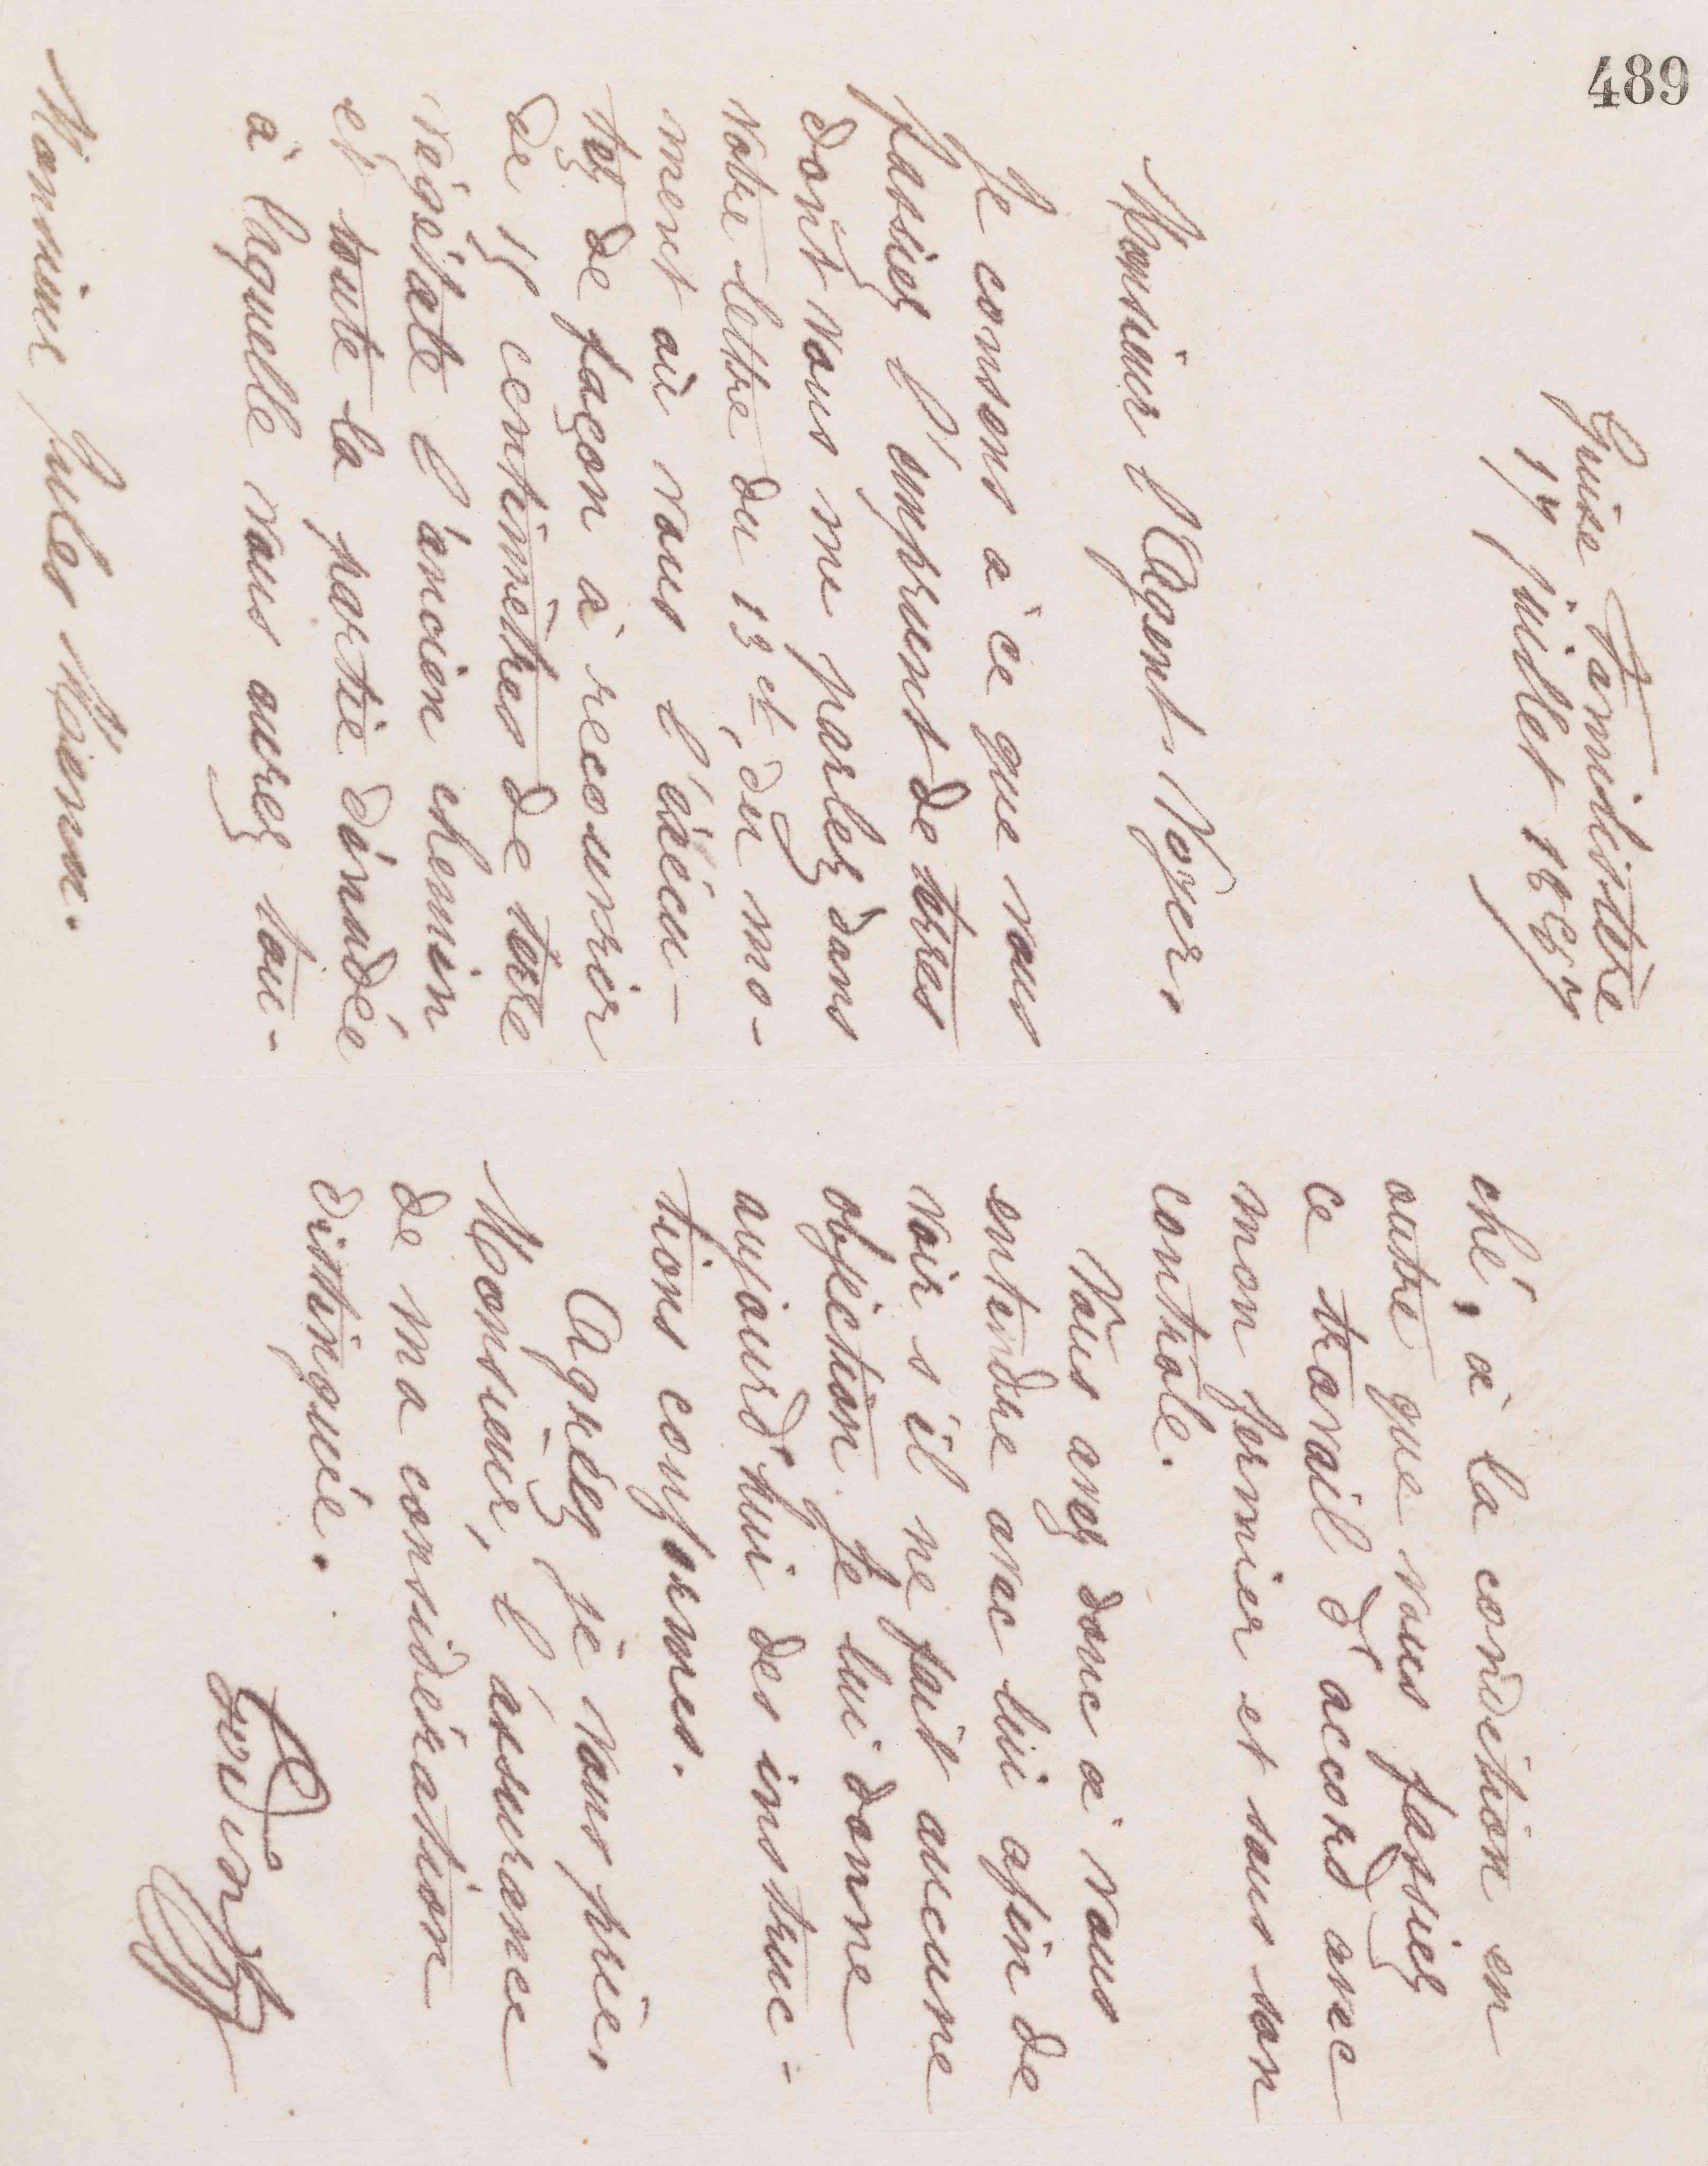 489
Guise Familistère
17 juillet 1887
Monsieur l'Agent-Voyer,
Je consens à ce que vous
fassiez l'emprunt de terres
dont vous me parlez dans
votre lettre du 13 ct, du mo-
ment où vous l'éxécu-
tez de façon à recouvrir
de 15 centimètres de terre
végétale l'ancien chemin
et toute la partie dénudée
à laquelle vous aurez tou-
Monsieur Jules
ché, à la condition en
outre que vous fassiez
ce travail d'accord avec
mon fermier et sous son
contrôle.
Vous avez donc à vous
entendre avec lui afin de
voir s'il ne fait aucune
objection. Je lui donne
aujourd'hui des instruc-
tions conformes.
Agréez je vous prie,
Monsieur, l'assurance
de ma considération
distinguée.
Godin